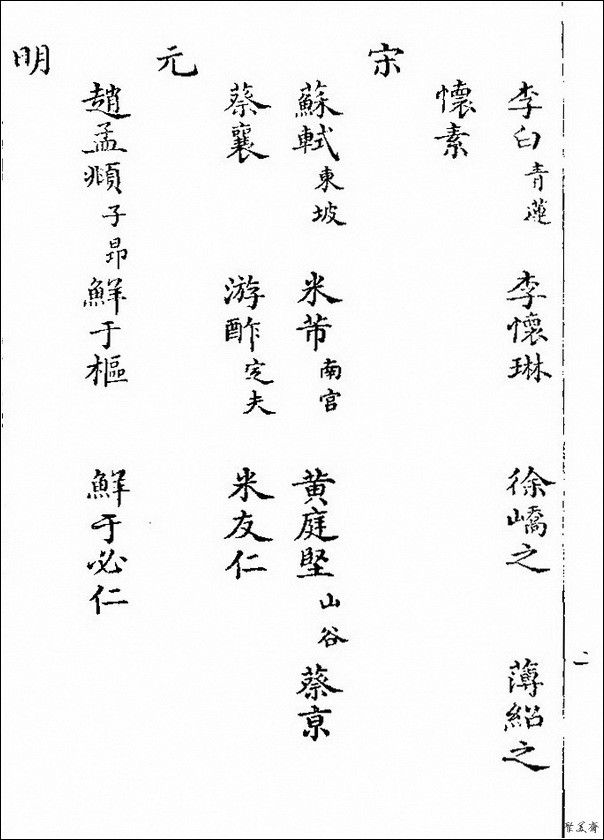 李白青蓮 李懷琳 徐嶠之 薄紹之
懷素
宋
蘇軾東坡 米芾南宮 黄庭堅山谷 蔡京
蔡襄 游酢定夫 米友仁
元
趙孟頫子昂 鮮于樞 鮮于必仁
明
二